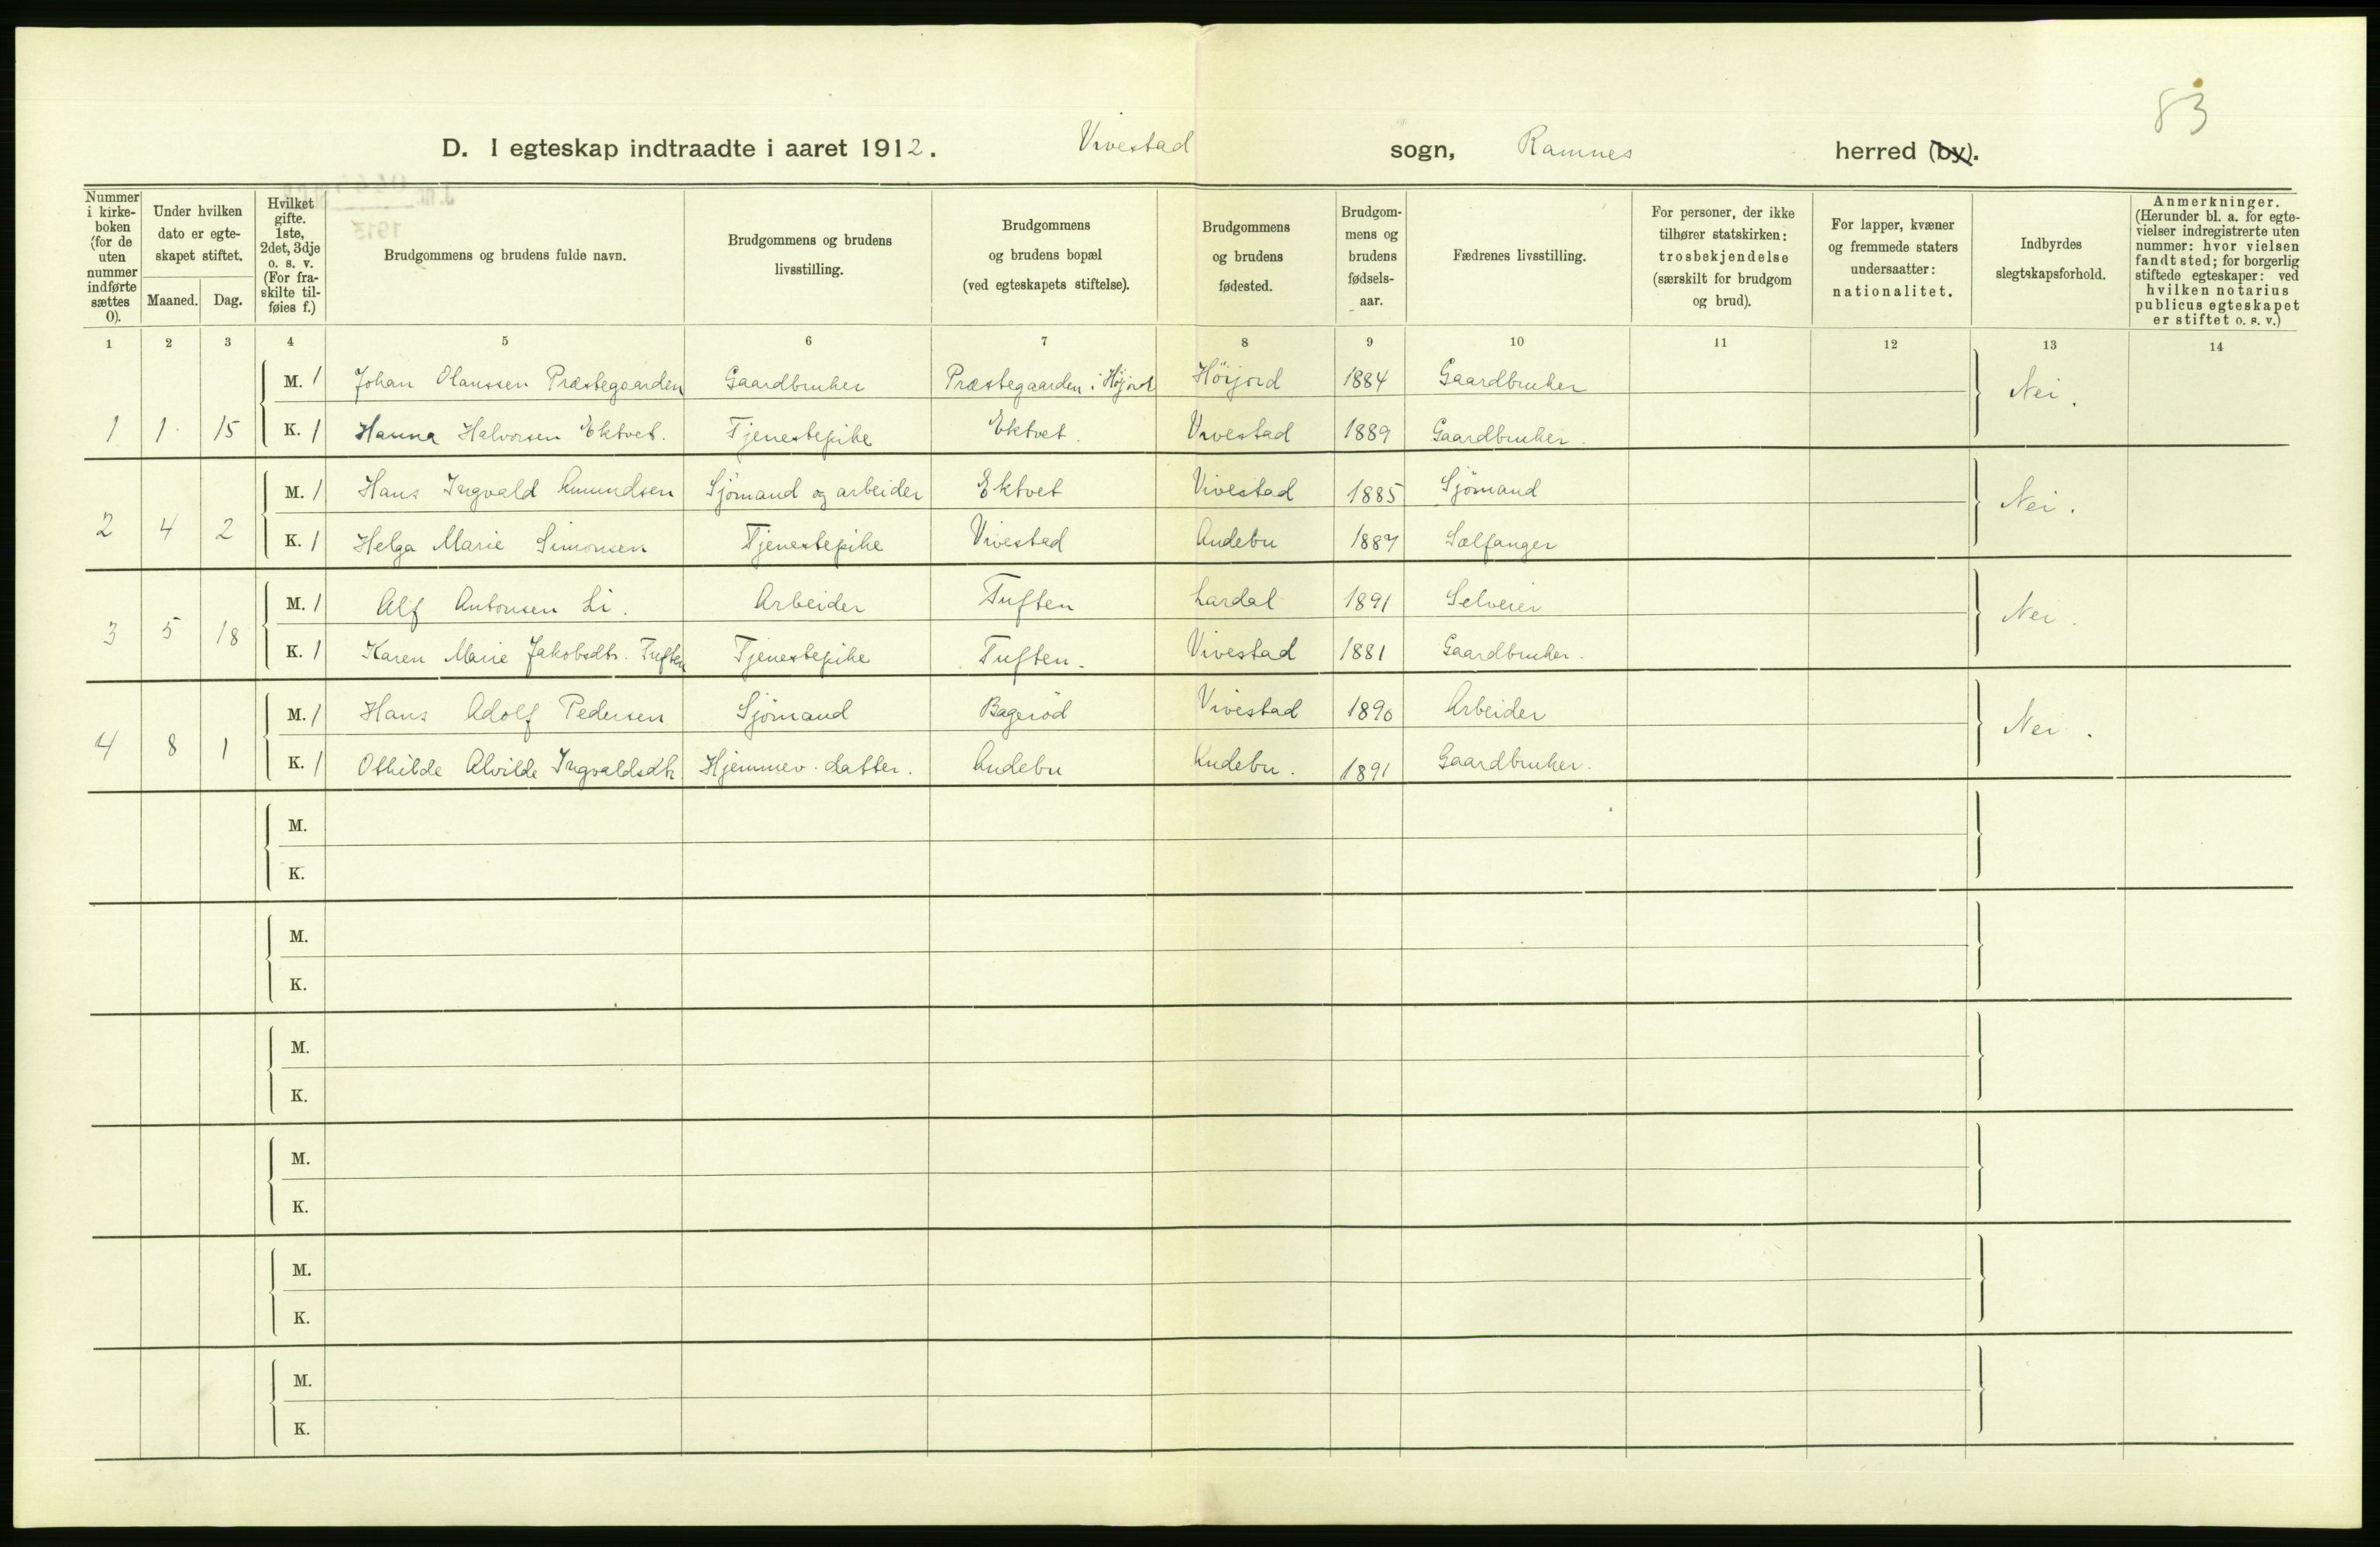 83
D. I egteskap indtraadte i aaret 1912. Vivestad sogn, Ramnes herred (by).
Nummer i kirke-boken (for de uten nummer indførte sættes 0).
Under hvilken dato er egte-skapet stiftet.
Maaned. Dag.
Hvilket gifte. 1ste, 2det, 3dje o. s. v. (For fra-skilte til-føies f.)
Brudgommens og brudens fulde navn.
Brudgommens og brudens livsstilling.
Brudgommens og brudens bopæl (ved egteskapets stiftelse).
Brudgommens og brudens fødested.
Brudgom-mens og brudens fødsels-aar.
Fædrenes livsstilling.
For personer, der ikke tilhører statskirken: trosbekjendelse (særskilt for brudgom og brud).
For lapper, kvæner og fremmede staters undersaatter: nationalitet.
Indbyrdes slegtskapsforhold.
Anmerkninger. (Herunder bl. a. for egte-vielser indregistrerte uten nummer: hvor vielsen fandt sted; for borgerlig stiftede egteskaper: ved hvilken notarius publicus egteskapet er stiftet o. s. v.)
1 2 3 4 5 6 7 8 9 10 11 12 13 14
M. 1 Johan Olaussen Præstegaarden Gaardbruker Præstegaarden i Høijord Höijord 1884 Gaardbruker Nei.
1 1 15 K. 1 Hanna Halvorsen Ektvet. Tjenestepike Ektvet. Vivestad 1889 Gaardbruker.
M. 1 Hans Ingvald Amundsen Sjömand og arbeider Ektvet Vivestad 1885 Sjömand Nei.
2 4 2 K. 1 Helga Marie Simonsen Tjenestepike Vivestad Andebu 1887 Sælfanger
M. 1 Alf Antonsen Li. Arbeider Tuften Lardal 1891 Selveier Nei.
3 5 18 K. 1 Karen Marie Jakobsdtr. Tuften Tjenestepike Tuften. Vivestad 1881 Gaardbruker.
M. 1 Hans Adolf Pedersen Sjömand Bageröd Vivestad 1890 Arbeider Nei.
4 8 1 K. 1 Othilde Alvilde Ingvaldsdtr Hjemmev. datter. Andebu Andebu. 1891 Gaardbruker.
M.
K.
M.
K.
M.
K.
M.
K.
M.
K.
M.
K.